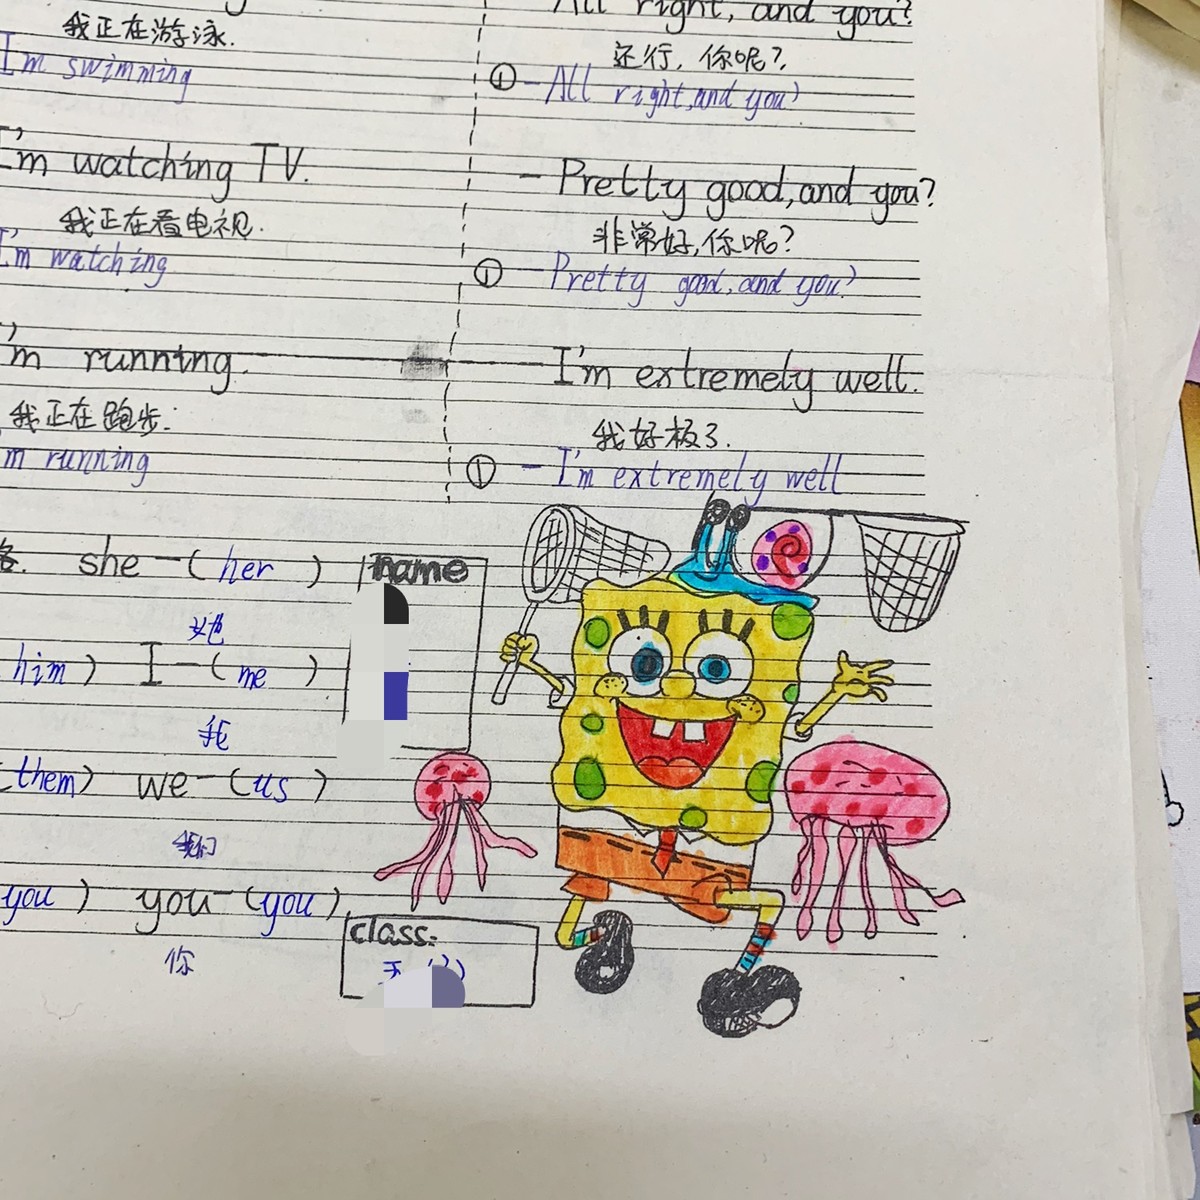 我正在游泳.
I'm swimming
I'm watching TV.
我正在看电视.
I'm watching
'm running.
我正在跑步.
m running
All right, and you?
还行，你呢?
① -All right,and you?
- Pretty good,and you?
非常好,你呢?
① - Pretty good,and you?
- I'm extremely well.
我好极了.
① - I'm extremely well
she -( her )
她
him ) I -( me )
我
(them) we -(us )
我们
you ) you -(you )
你
name
class: